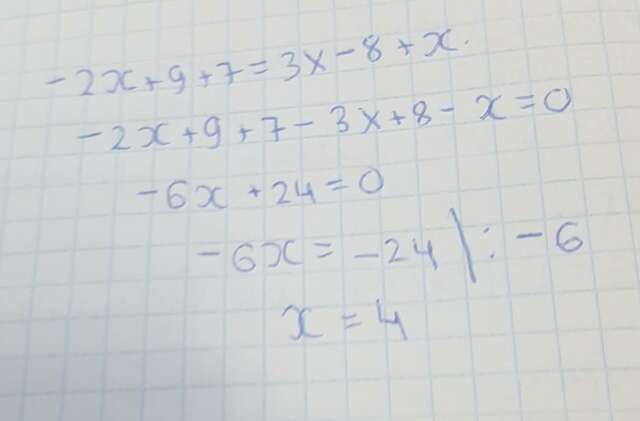 -2x+9+7=3x-8+x.
-2x+9+7-3x+8-x=0
-6x+24=0
-6x=-24|:-6
x=4